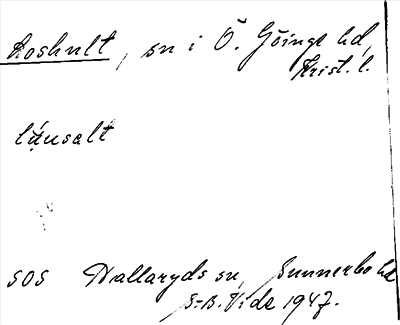 Loshult, sn i Ö. Göinge hd,
Krist. l.
lǻusalt
SOS Hallaryds sn, Sunnerbo hd
S-B. Vide 1947.